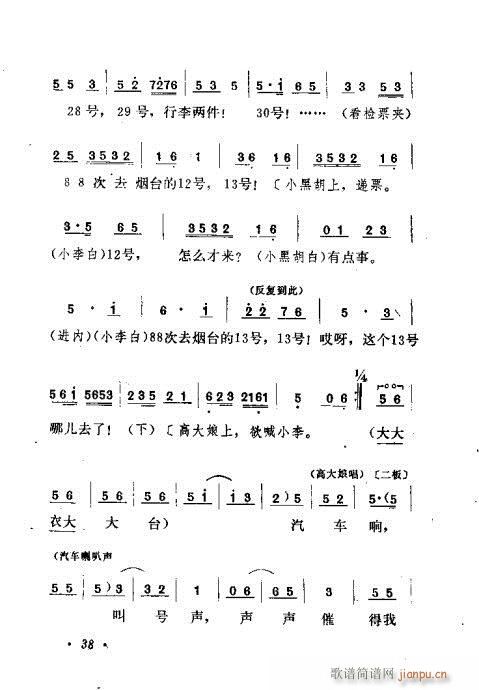 5 5 3 | 5 2 7276 | 5 3 5 | 5·i 6 5 | 3 3 5 3 |
28号，29号，行李两件！ 30号！……（看检票夹）
2 5 3532 | 1 6 1 | 3 6 1 6 | 3532 1 6 |
88次去烟台的12号，13号！〔小黑胡上，递票。
3·5 6 5 | 3532 1 6 | 0 1 2 3 |
（小李白）12号， 怎么才来？（小黑胡白）有点事。
（反复到此）
5 · i | 6 · i | 2 2 7 6 | 5 · 3 |
（进内）（小李白）88次去烟台的13号，13号！哎呀，这个13号
1/4
5 6 i 5653 | 2 3 5 2 1 | 6 2 3 2161 | 5 0 6 :| 5 6 |
哪儿去了！（下）〔高大娘上，欲喊小李。 （大大
（高大娘唱）〔二板〕
5 6 | 5 6 | 5 i | i 3 | 2 ) 5 | 5 2 | 5·(5 |
衣大 大 台） 汽 车 响，
（汽车喇叭声
5 5 | 5 ) 3 | 3 2 | 1 | 0 6 | 6 5 | 3 | 5 5 | 3 2 |
叫 号 声， 声 声 催 得我
· 38 ·
歌谱简谱网
jianpu.cn